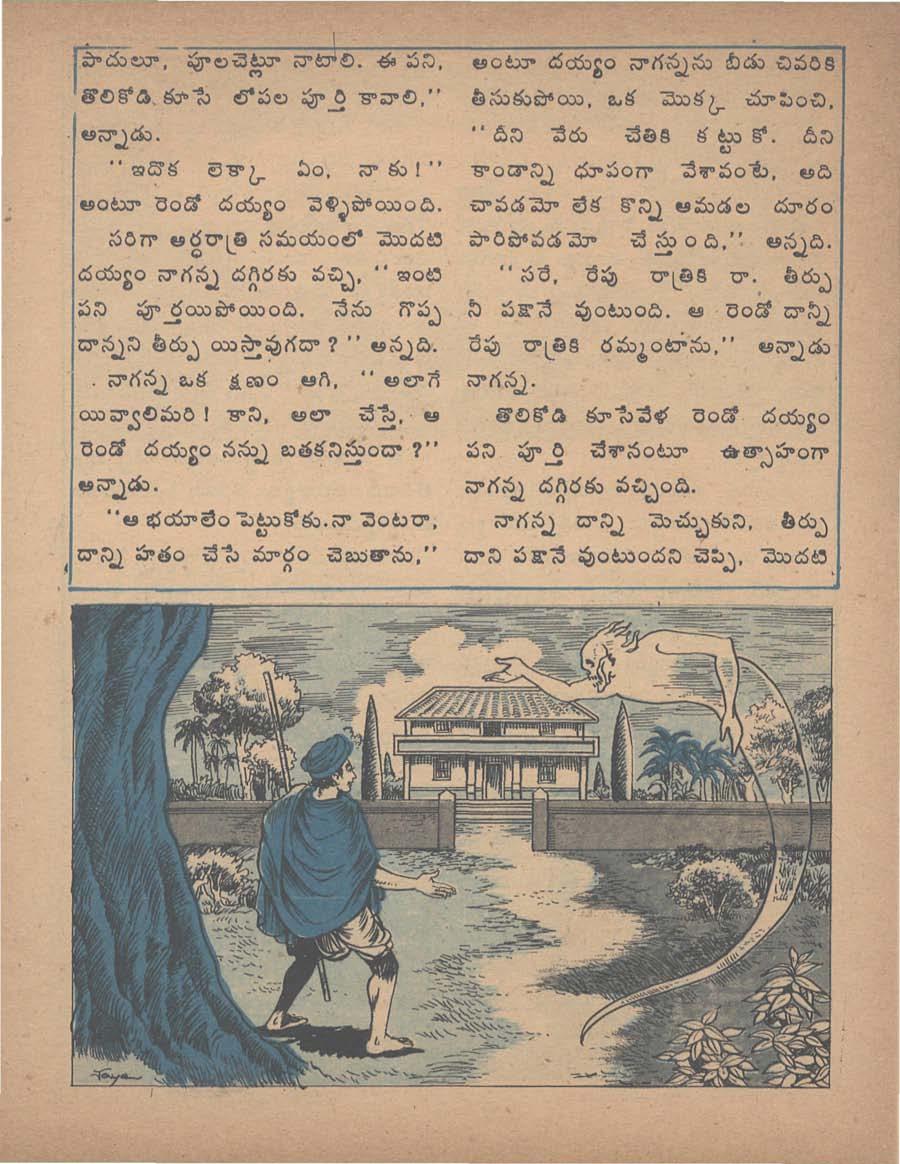 పాదులూ, పూలచెట్లూ నాటాలి. ఈ పని,
తొలికోడి కూసే లోపల పూర్తి కావాలి,''
అన్నాడు.
''ఇదొక లెక్కా ఏం, నాకు!''
అంటూ రెండో దయ్యం వెళ్ళిపోయింది.
సరిగా అర్ధరాత్రి సమయంలో మొదటి
దయ్యం నాగన్న దగ్గిరకు వచ్చి, ''ఇంటి
పని పూర్తయిపోయింది. నేను గొప్ప
దాన్నని తీర్పు యిస్తావుగదా?'' అన్నది.
నాగన్న ఒక క్షణం ఆగి, ''అలాగే
యివ్వాలిమరి! కాని, అలా చేస్తే, ఆ
రెండో దయ్యం నన్ను బతకనిస్తుందా?''
అన్నాడు.
''ఆ భయాలేం పెట్టుకోకు. నా వెంటరా,
దాన్ని హతం చేసే మార్గం చెబుతాను,''
అంటూ దయ్యం నాగన్నను బీడు చివరికి
తీసుకుపోయి, ఒక మొక్క చూపించి,
''దీని వేరు చేతికి కట్టుకో. దీని
కాండాన్ని ధూపంగా వేశావంటే, అది
చావడమో లేక కొన్ని ఆమడల దూరం
పారిపోవడమో చేస్తుంది,'' అన్నది.
''సరే, రేపు రాత్రికి రా. తీర్పు
నీ పక్షానే వుంటుంది. ఆ రెండో దాన్నీ
రేపు రాత్రికి రమ్మంటాను,'' అన్నాడు
నాగన్న.
తొలికోడి కూసేవేళ రెండో దయ్యం
పని పూర్తి చేశానంటూ ఉత్సాహంగా
నాగన్న దగ్గిరకు వచ్చింది.
నాగన్న దాన్ని మెచ్చుకుని, తీర్పు
దాని పక్షానే వుంటుందని చెప్పి, మొదటి